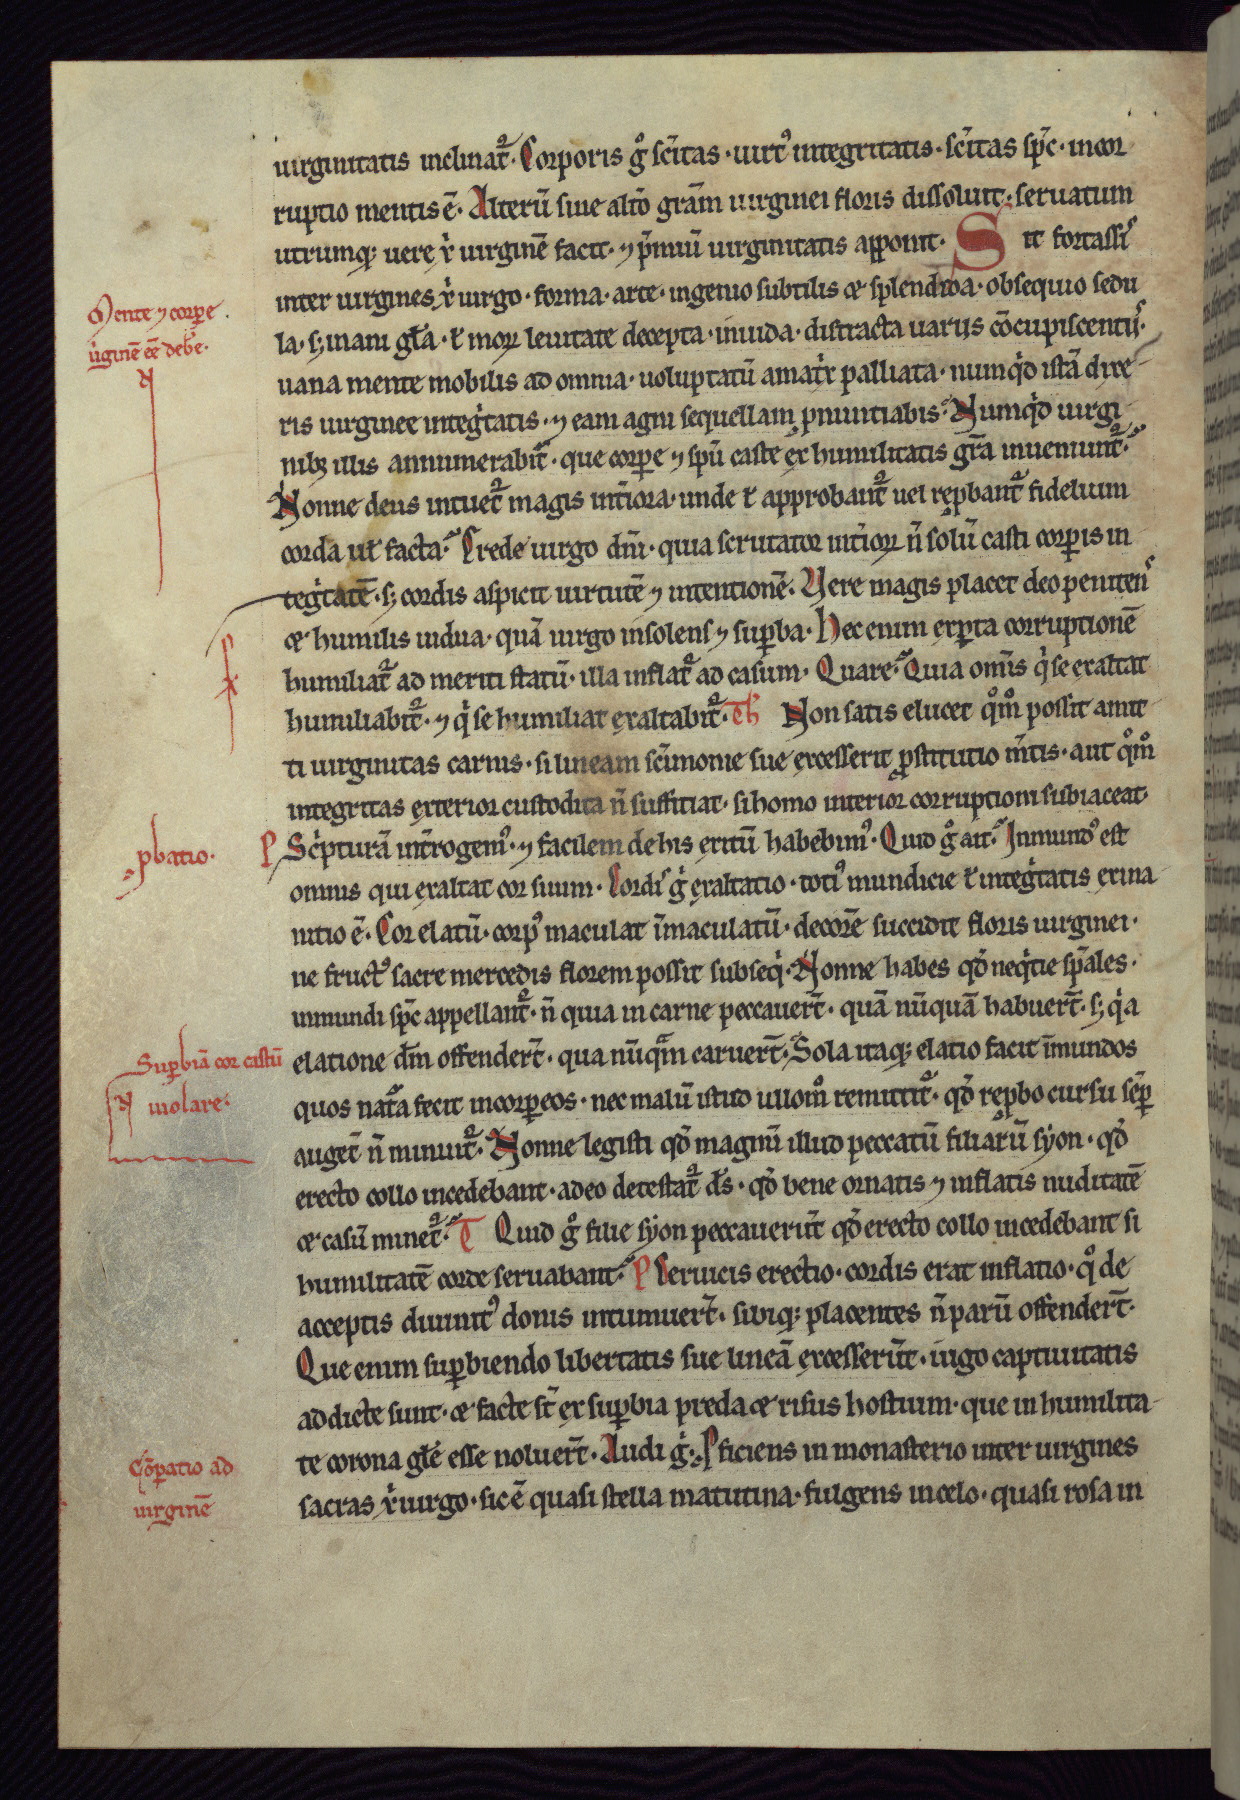 uirginitatis inclinat᷑. Corporis g̊ sc̄itas. uirt᾽ integritatis. sc̄itas sp̄c. incor
ruptio mentis ē. Alterū sine alt̄o gr̄am uirginei floris dissoluit: seruatum
utrumq; uere xp̄i uirginē facit. ⁊ p̄miū uirginitatis apponit. Sit fortassis
inter uirgines xp̄i uirgo. forma. arte. ingenio subtilis et splendida. obsequio sedu
la. s; inani gl̄a. ⁊ moꝝ leuitate decepta. inuida. distracta uariis cōcupiscentiis.
uana mente mobilis ad omnia. uoluptatū amatrix palliata. numqͥd istā dixe
ris uirginee integͥtatis. ⁊ eam agni sequellam pnuntiabis. Numqͥd uirgi
nibꝫ illis annumerabit᷑. que corpe ⁊ spū caste ex humilitatis gr̄a inueniunt᷑.
Nonne deus intuet᷑ magis int̄iora. unde ⁊ approbant᷑ uel reprobant᷑ fidelium
corda ul̄ facta. Crede uirgo dn̄i. quia scrutator int̄ioꝝ n̄ solū casti corꝑis in
tegͥtatē. s; cordis aspicit uirtutē ⁊ intentionē. Vere magis placet deo penitens
et humilis uidua. quā uirgo insolens ⁊ suꝑba. Hec enim exꝑta corruptionē
humiliat᷑ ad meriti statū. illa inflat᷑ ad casum. Quare. Quia omīs qͥ se exaltat
humiliabit᷑. ⁊ qͥ se humiliat exaltabit᷑. Th Non satis elucet qͦmͦ possit amit
ti uirginitas carnis. si lineam sc̄imonie sue excesserit ꝓstitutio m̄tis. aut qͦmͦ
integritas exterior custodita n̄ suffitiat. si homo interior corruptioni subiaceat.
P Scͥpturā int̄rogem᾽. ⁊ facilem de his exitū habebim᾽. Quid g̊ ait. Inmund᾽ est
omnis qui exaltat cor suum. Cordis gͥ exaltatio. toti᾽ mundicie ⁊ integͥtatis exina
nitio ē. Cor elatū. corp᾽ maculat īmaculatū. decorē succidit floris uirginei.
ne fruct᾽ sacre mercedis florem possit subseqͥ. Nonne habes qd̄ neqͥtie sp̄ales.
inmundi sp̄c appellant᷑. n̄ quia in carne peccauer̄t. quā nūquā habuer̄t. s; qͥa
elatione dm̄ offender̄t. qua nūqͣm caruer̄t. Sola itaq; elatio facit īmundos
quos nat̄a fecit incorꝑeos. nec malū istud ullomͦ remittit᷑. qd̄ reꝓbo cursu sēꝑ
auget̄ n̄ minuit᷑. Nonne legisti qd̄ maginū illud peccatū filiarū syon. qd̄
erecto collo incedebant. adeo detestat᷑ ds̄. qd̄ bene ornatis ⁊ inflatis nuditatē
et casū minet᷑. T Quid g̊ filie syon peccauerūt qd̄ erecto collo incedebant si
humilitatē corde seruabant. P Ceruicis erectio. cordis erat inflatio. qͦ de
acceptis diuinit᾽ donis intumuer̄t. sibiq; placentes n̄ parū offender̄t.
Que enim suꝑbiendo libertatis sue lineā excesserūt. iugo captiuitatis
addicte sunt. et facte st̄ ex suꝑbia preda et risus hostium. que in humilita
te corona gl̄e esse noluer̄t. Audi gͥ. Pficiens in monasterio inter uirgines
sacras xp̄i uirgo. sic ē quasi stella matutina. fulgens in celo. quasi rosa in
Mente ⁊ corꝑe.
uͥginē eē debē.
pbatio.
Suꝑbiā cor castū
uiolare.
Cōꝑatio ad
uirginē